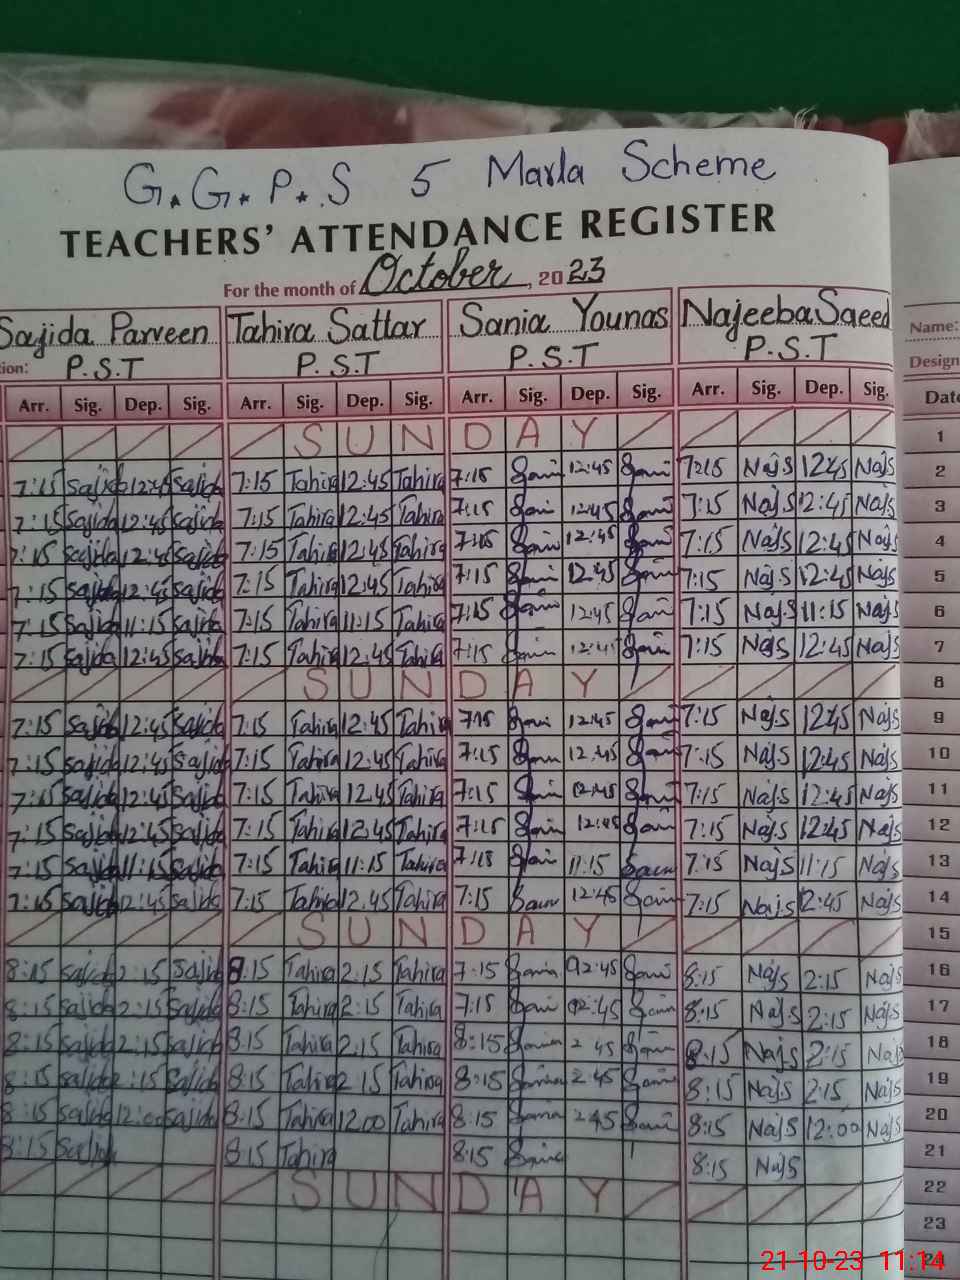 G.G.P.S 5 Marla Scheme
TEACHERS' ATTENDANCE REGISTER
For the month of October, 2023
Sajida Parveen Tahira Sattar Sania Younas Najeeba Saeed Name:
tion: P.S.T P.S.T P.S.T P.S.T Design
Arr. Sig. Dep. Sig. Arr. Sig. Dep. Sig. Arr. Sig. Dep. Sig. Arr. Sig. Dep. Sig. Date
SUNDAY 1
7:15 Sajida 12:45 Sajida 7:15 Tahira 12:45 Tahira 7:15 Sani 12:45 Sani 7:15 Naj.S 12:45 Naj.S 2
7:15 Sajida 12:45 Sajida 7:15 Tahira 12:45 Tahira 7:15 Sani 12:45 Sani 7:15 Naj.S 12:45 Naj.S 3
7:15 Sajida 12:45 Sajida 7:15 Tahira 12:45 Tahira 7:15 Sani 12:45 Sani 7:15 Naj.S 12:45 Naj.S 4
7:15 Sajida 12:45 Sajida 7:15 Tahira 12:45 Tahira 7:15 Sani 12:45 Sani 7:15 Naj.S 12:45 Naj.S 5
7:15 Sajida 11:15 Sajida 7:15 Tahira 11:15 Tahira 7:15 Sani 12:45 Sani 7:15 Naj.S 11:15 Naj.S 6
7:15 Sajida 12:45 Sajida 7:15 Tahira 12:45 Tahira 7:15 Sani 12:45 Sani 7:15 Naj.S 12:45 Naj.S 7
SUNDAY 8
7:15 Sajida 12:45 Sajida 7:15 Tahira 12:45 Tahira 7:15 Sani 12:45 Sani 7:15 Naj.S 12:45 Naj.S 9
7:15 Sajida 12:45 Sajida 7:15 Tahira 12:45 Tahira 7:15 Sani 12:45 Sani 7:15 Naj.S 12:45 Naj.S 10
7:15 Sajida 12:45 Sajida 7:15 Tahira 12:45 Tahira 7:15 Sani 12:45 Sani 7:15 Naj.S 12:45 Naj.S 11
7:15 Sajida 12:45 Sajida 7:15 Tahira 12:45 Tahira 7:15 Sani 12:45 Sani 7:15 Naj.S 12:45 Naj.S 12
7:15 Sajida 11:15 Sajida 7:15 Tahira 11:15 Tahira 7:15 Sani 11:15 Sani 7:15 Naj.S 11:15 Naj.S 13
7:15 Sajida 12:45 Sajida 7:15 Tahira 12:45 Tahira 7:15 Sani 12:45 Sani 7:15 Naj.S 12:45 Naj.S 14
SUNDAY 15
8:15 Sajida 2:15 Sajida 8:15 Tahira 2:15 Tahira 7:15 Sania 02:45 Sani 8:15 Naj.S 2:15 Naj.S 16
8:15 Sajida 2:15 Sajida 8:15 Tahira 2:15 Tahira 7:15 Sani 02:45 Sani 8:15 Naj.S 2:15 Naj.S 17
8:15 Sajida 2:15 Sajida 8:15 Tahira 2:15 Tahira 8:15 Sania 2:45 Sani 8:15 Naj.S 2:15 Naj.S 18
8:15 Sajida 2:15 Sajida 8:15 Tahira 2:15 Tahira 8:15 Sania 2:45 Sani 8:15 Naj.S 2:15 Naj.S 19
8:15 Sajida 12:00 Sajida 8:15 Tahira 12:00 Tahira 8:15 Sania 2:45 Sani 8:15 Naj.S 12:00 Naj.S 20
8:15 Sajida 8:15 Tahira 8:15 Sania 8:15 Naj.S 21
SUNDAY 22
23
24
21-10-23 11:14